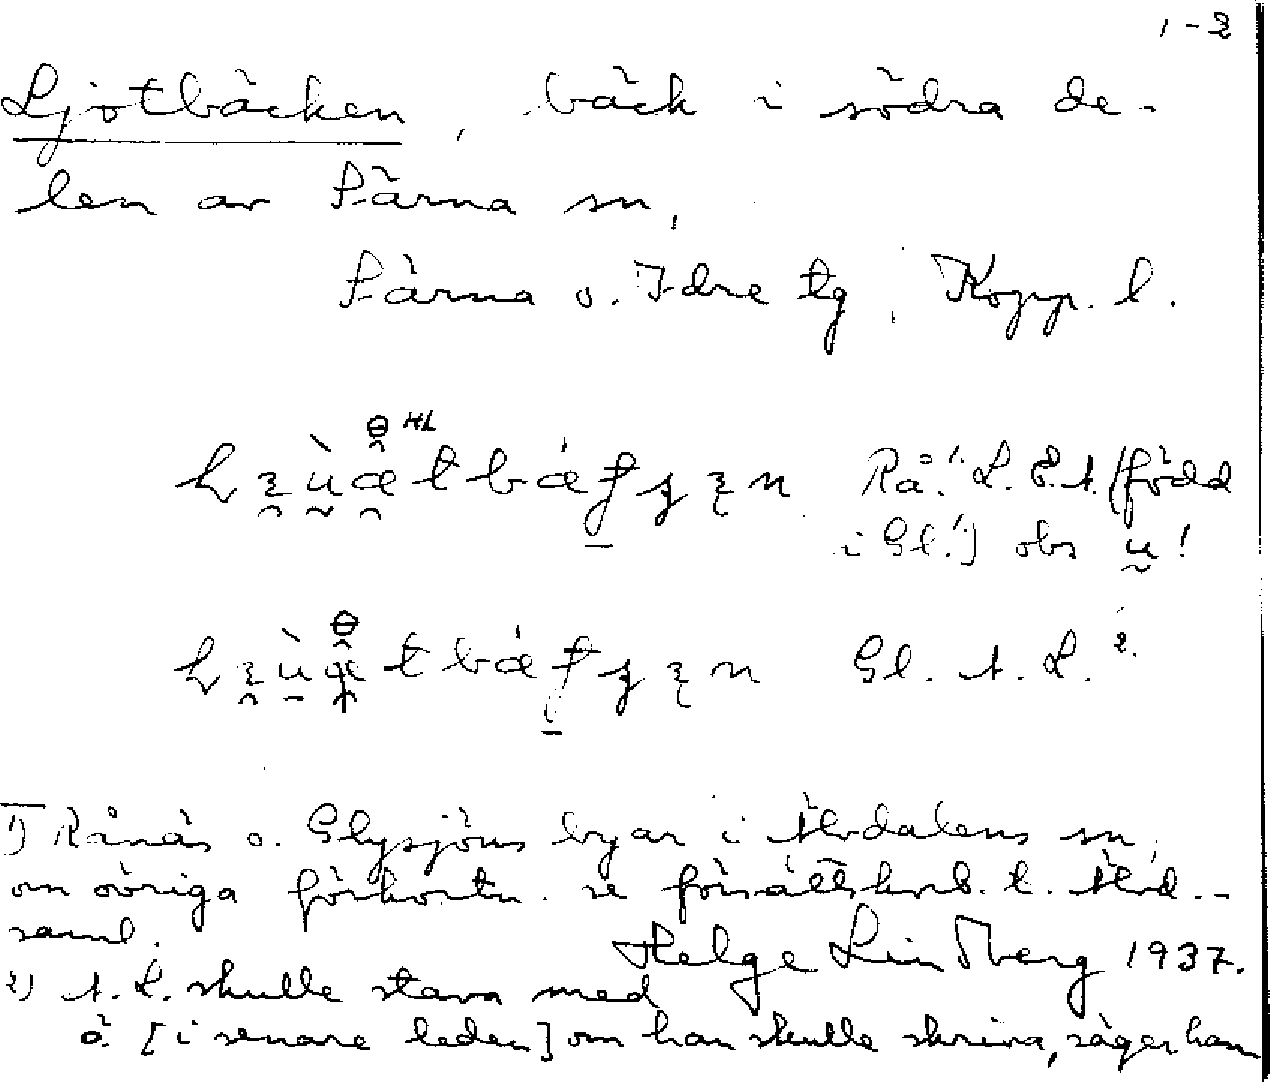 1-2
Ljotbäcken, bäck i södra de-
len av Särna sn,
Särna o. Idre tg, Kopp. l.
HL
Rå.¹ L.E.A. (född
i Gl.¹) obs u!
Gl. A. L.²
1) Rånäs o. Glysjöns byar i Älvdalens sn,
om övriga förkortn. se försättskort t. Älvd.-
saml.
Helge Lindberg 1937.
2) A. L. skulle stava med
ä [i senare leden] om han skulle skriva, säger han